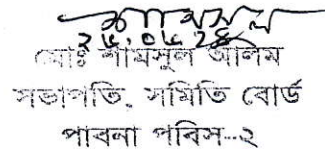 শামসুল
২৫.০৫.২৪
মোঃ শামসুল আলম
সভাপতি, সমিতি বোর্ড
পাবনা পবিস-২